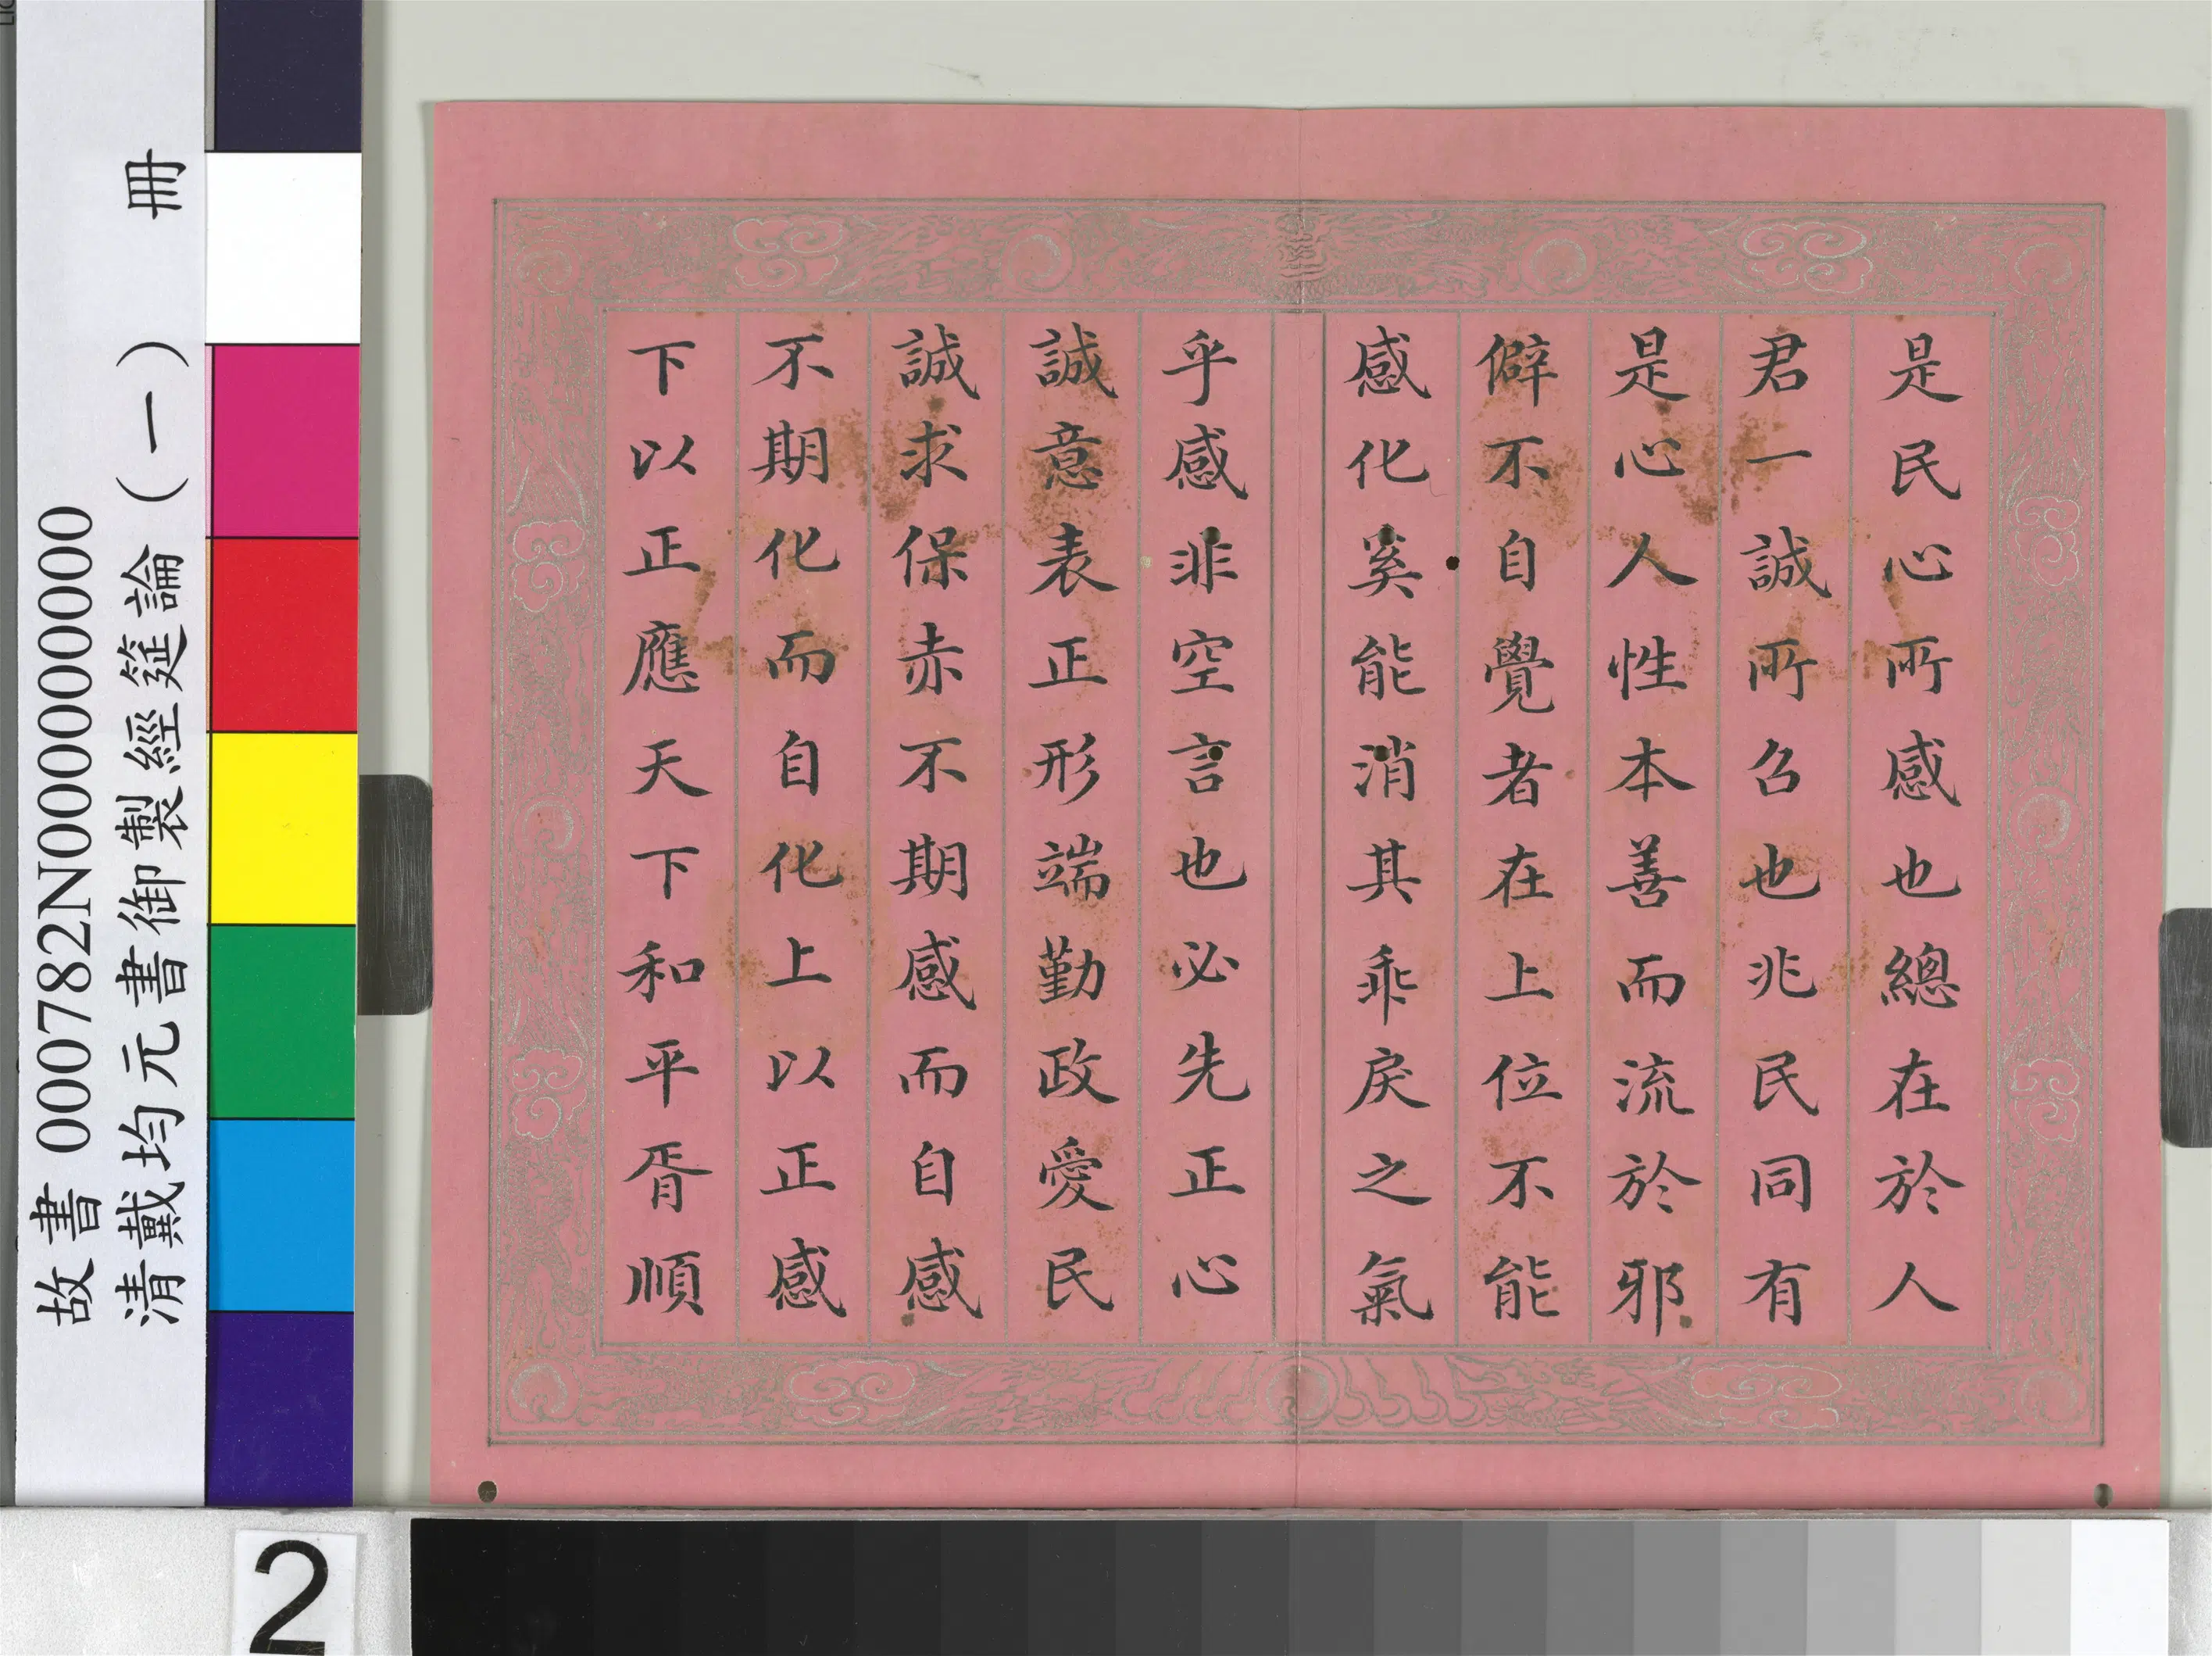 是民心所感也總在於人
君一誠所召也兆民同有
是心人性本善而流於邪
僻不自覺者在上位不能
感化奚能消其乖戾之氣
乎感非空言也必先正心
誠意表正形端勤政愛民
誠求保赤不期感而自感
不期化而自化上以正感
下以正應天下和平胥順
故書 000782N000000000
清戴均元書御製經筵論(一) 冊
2